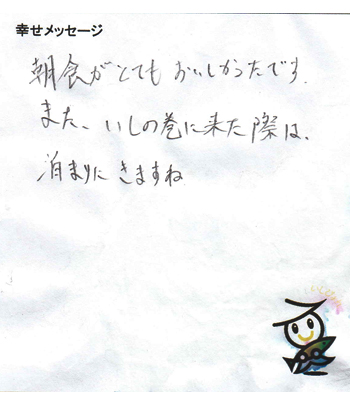 幸せメッセージ
朝食がとても おいしかったです.
また、いしの巻に来た際は、
泊まりに きますね